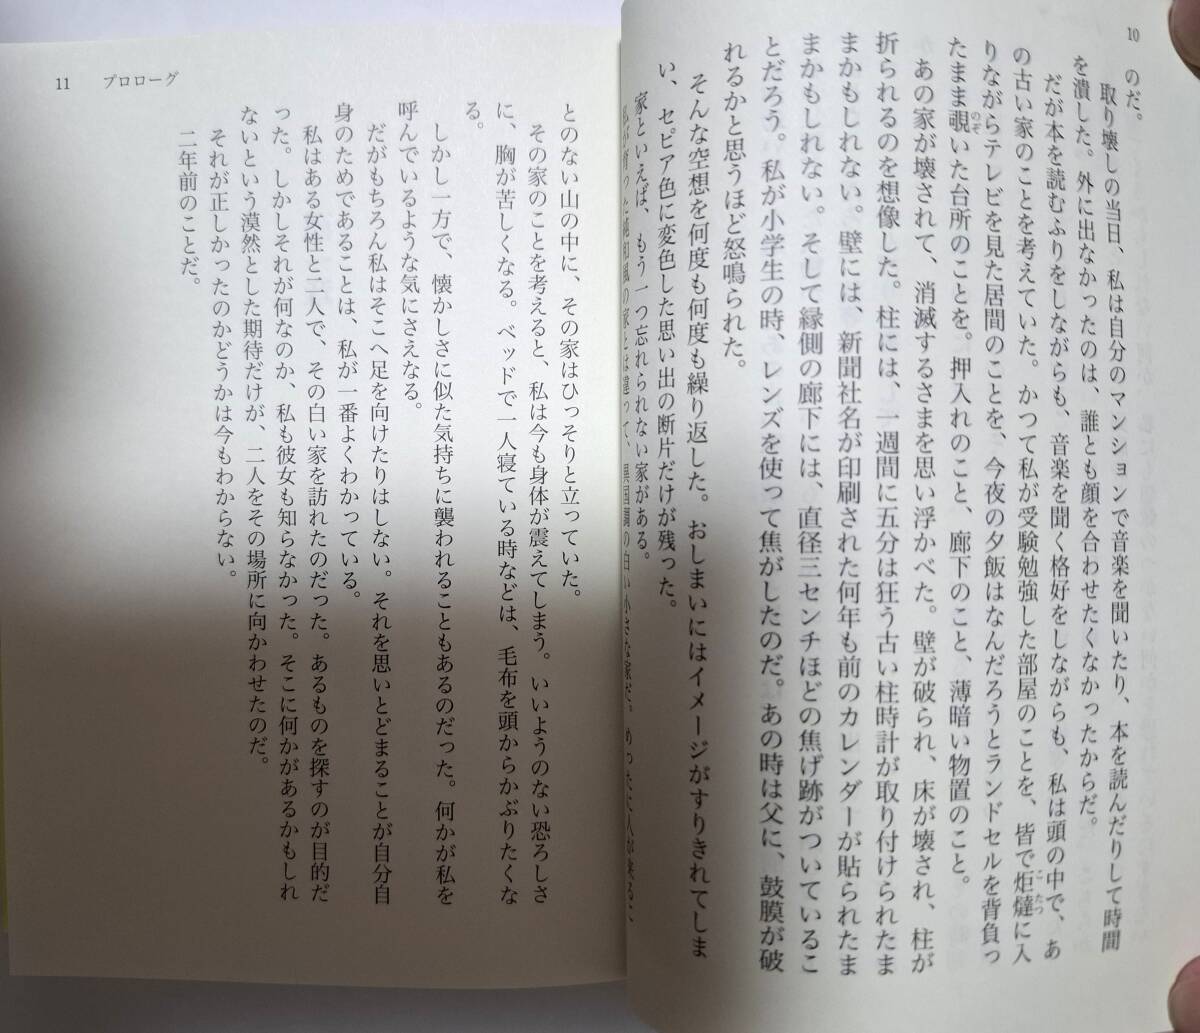 10
のだ。
取り壊しの当日、私は自分のマンションで音楽を聞いたり、本を読んだりして時間
を潰した。外に出なかったのは、誰とも顔を合わせたくなかったからだ。
だが本を読むふりをしながらも、音楽を聞く格好をしながらも、私は頭の中で、あ
の古い家のことを考えていた。かつて私が受験勉強した部屋のことを、皆で炬燵に入
こたつ
りながらテレビを見た居間のことを、今夜の夕飯はなんだろうとランドセルを背負っ
たまま覗いた台所のことを。押入れのこと、廊下のこと、薄暗い物置のこと。
のぞ
あの家が壊されて、消滅するさまを思い浮かべた。壁が破られ、床が壊され、柱が
折られるのを想像した。柱には、一週間に五分は狂う古い柱時計が取り付けられたま
まかもしれない。壁には、新聞社名が印刷された何年も前のカレンダーが貼られたま
まかもしれない。そして縁側の廊下には、直径三センチほどの焦げ跡がついているこ
とだろう。私が小学生の時、レンズを使って焦がしたのだ。あの時は父に、鼓膜が破
れるかと思うほど怒鳴られた。
そんな空想を何度も何度も繰り返した。おしまいにはイメージがすりきれてしま
い、セピア色に変色した思い出の断片だけが残った。
家といえば、もう一つ忘れられない家がある。
私が育った純和風の家とは違って、異国調の白い小さな家だ。めったに人が来るこ
11 プロローグ
とのない山の中に、その家はひっそりと立っていた。
その家のことを考えると、私は今も身体が震えてしまう。いいようのない恐ろしさ
に、胸が苦しくなる。ベッドで一人寝ている時などは、毛布を頭からかぶりたくな
る。
しかし一方で、懐かしさに似た気持ちに襲われることもあるのだった。何かが私を
呼んでいるような気にさえなる。
だがもちろん私はそこへ足を向けたりはしない。それを思いとどまることが自分自
身のためであることは、私が一番よくわかっている。
私はある女性と二人で、その白い家を訪れたのだった。あるものを探すのが目的だ
った。しかしそれが何なのか、私も彼女も知らなかった。そこに何かがあるかもしれ
ないという漠然とした期待だけが、二人をその場所に向かわせたのだ。
それが正しかったのかどうかは今もわからない。
二年前のことだ。